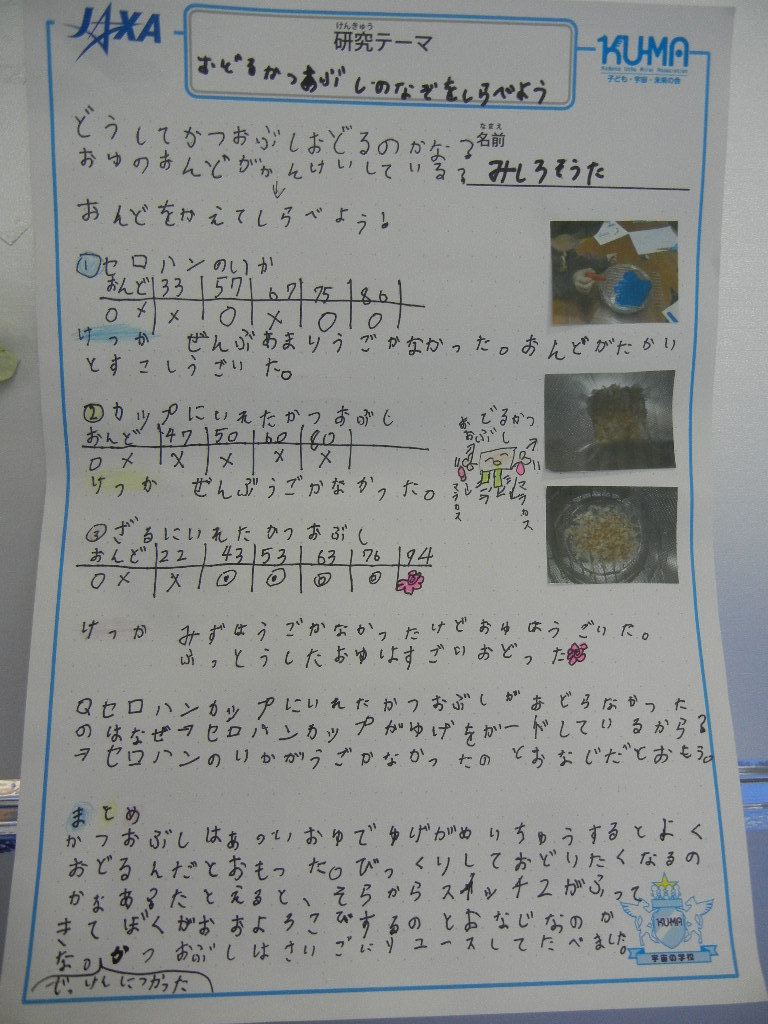 JAXA
けんきゅう
研究テーマ
おどるかつおぶしのなぞをしらべよう
KU-MA
子ども・宇宙・未来の会
どうしてかつおぶしおどるのかな?
なまえ
名前
おゆのおんどがかんけいしている?
みしろそうた
↓
おんどをかえてしらべよう!
① セロハンのいか
おんど 33 57 67 75 86
○ × × ○ × ○ ○
けっか ぜんぶあまりうごかなかった。おんどがたかい
とすこしうごいた。
② カップにいれたかつおぶし
おんど 47 50 60 80
○ × × × × ×
けっか ぜんぶうごかなかった。
おどるかつ
おぶし
マラカス
マラカス
③ ざるにいれたかつおぶし
おんど 22 43 53 63 76 94
○ × × ◎ ◎ ◎ ◎
けっか みずはうごかなかったけどおゆはうごいた。
ふっとうしたおゆはすごいおどった
Qセロハンカップにいれたかつおぶしがおどらなかった
のはなぜ→セロハンカップがゆげをガードしているから?
→セロハンのいかがうごかなかったのとおなじだとおもう。
まとめ
かつおぶしはあついおゆでゆげがめいちゅうするとよく
おどるんだとおもった。びっくりしておどりたくなるの
かなあ。たとえると、そらからスイッチ2がふって
きてぼくがおおよろこびするのとおなじなのか
な。かつおぶしはさいごにリユースしてたべました。
KUMA
宇宙の学校